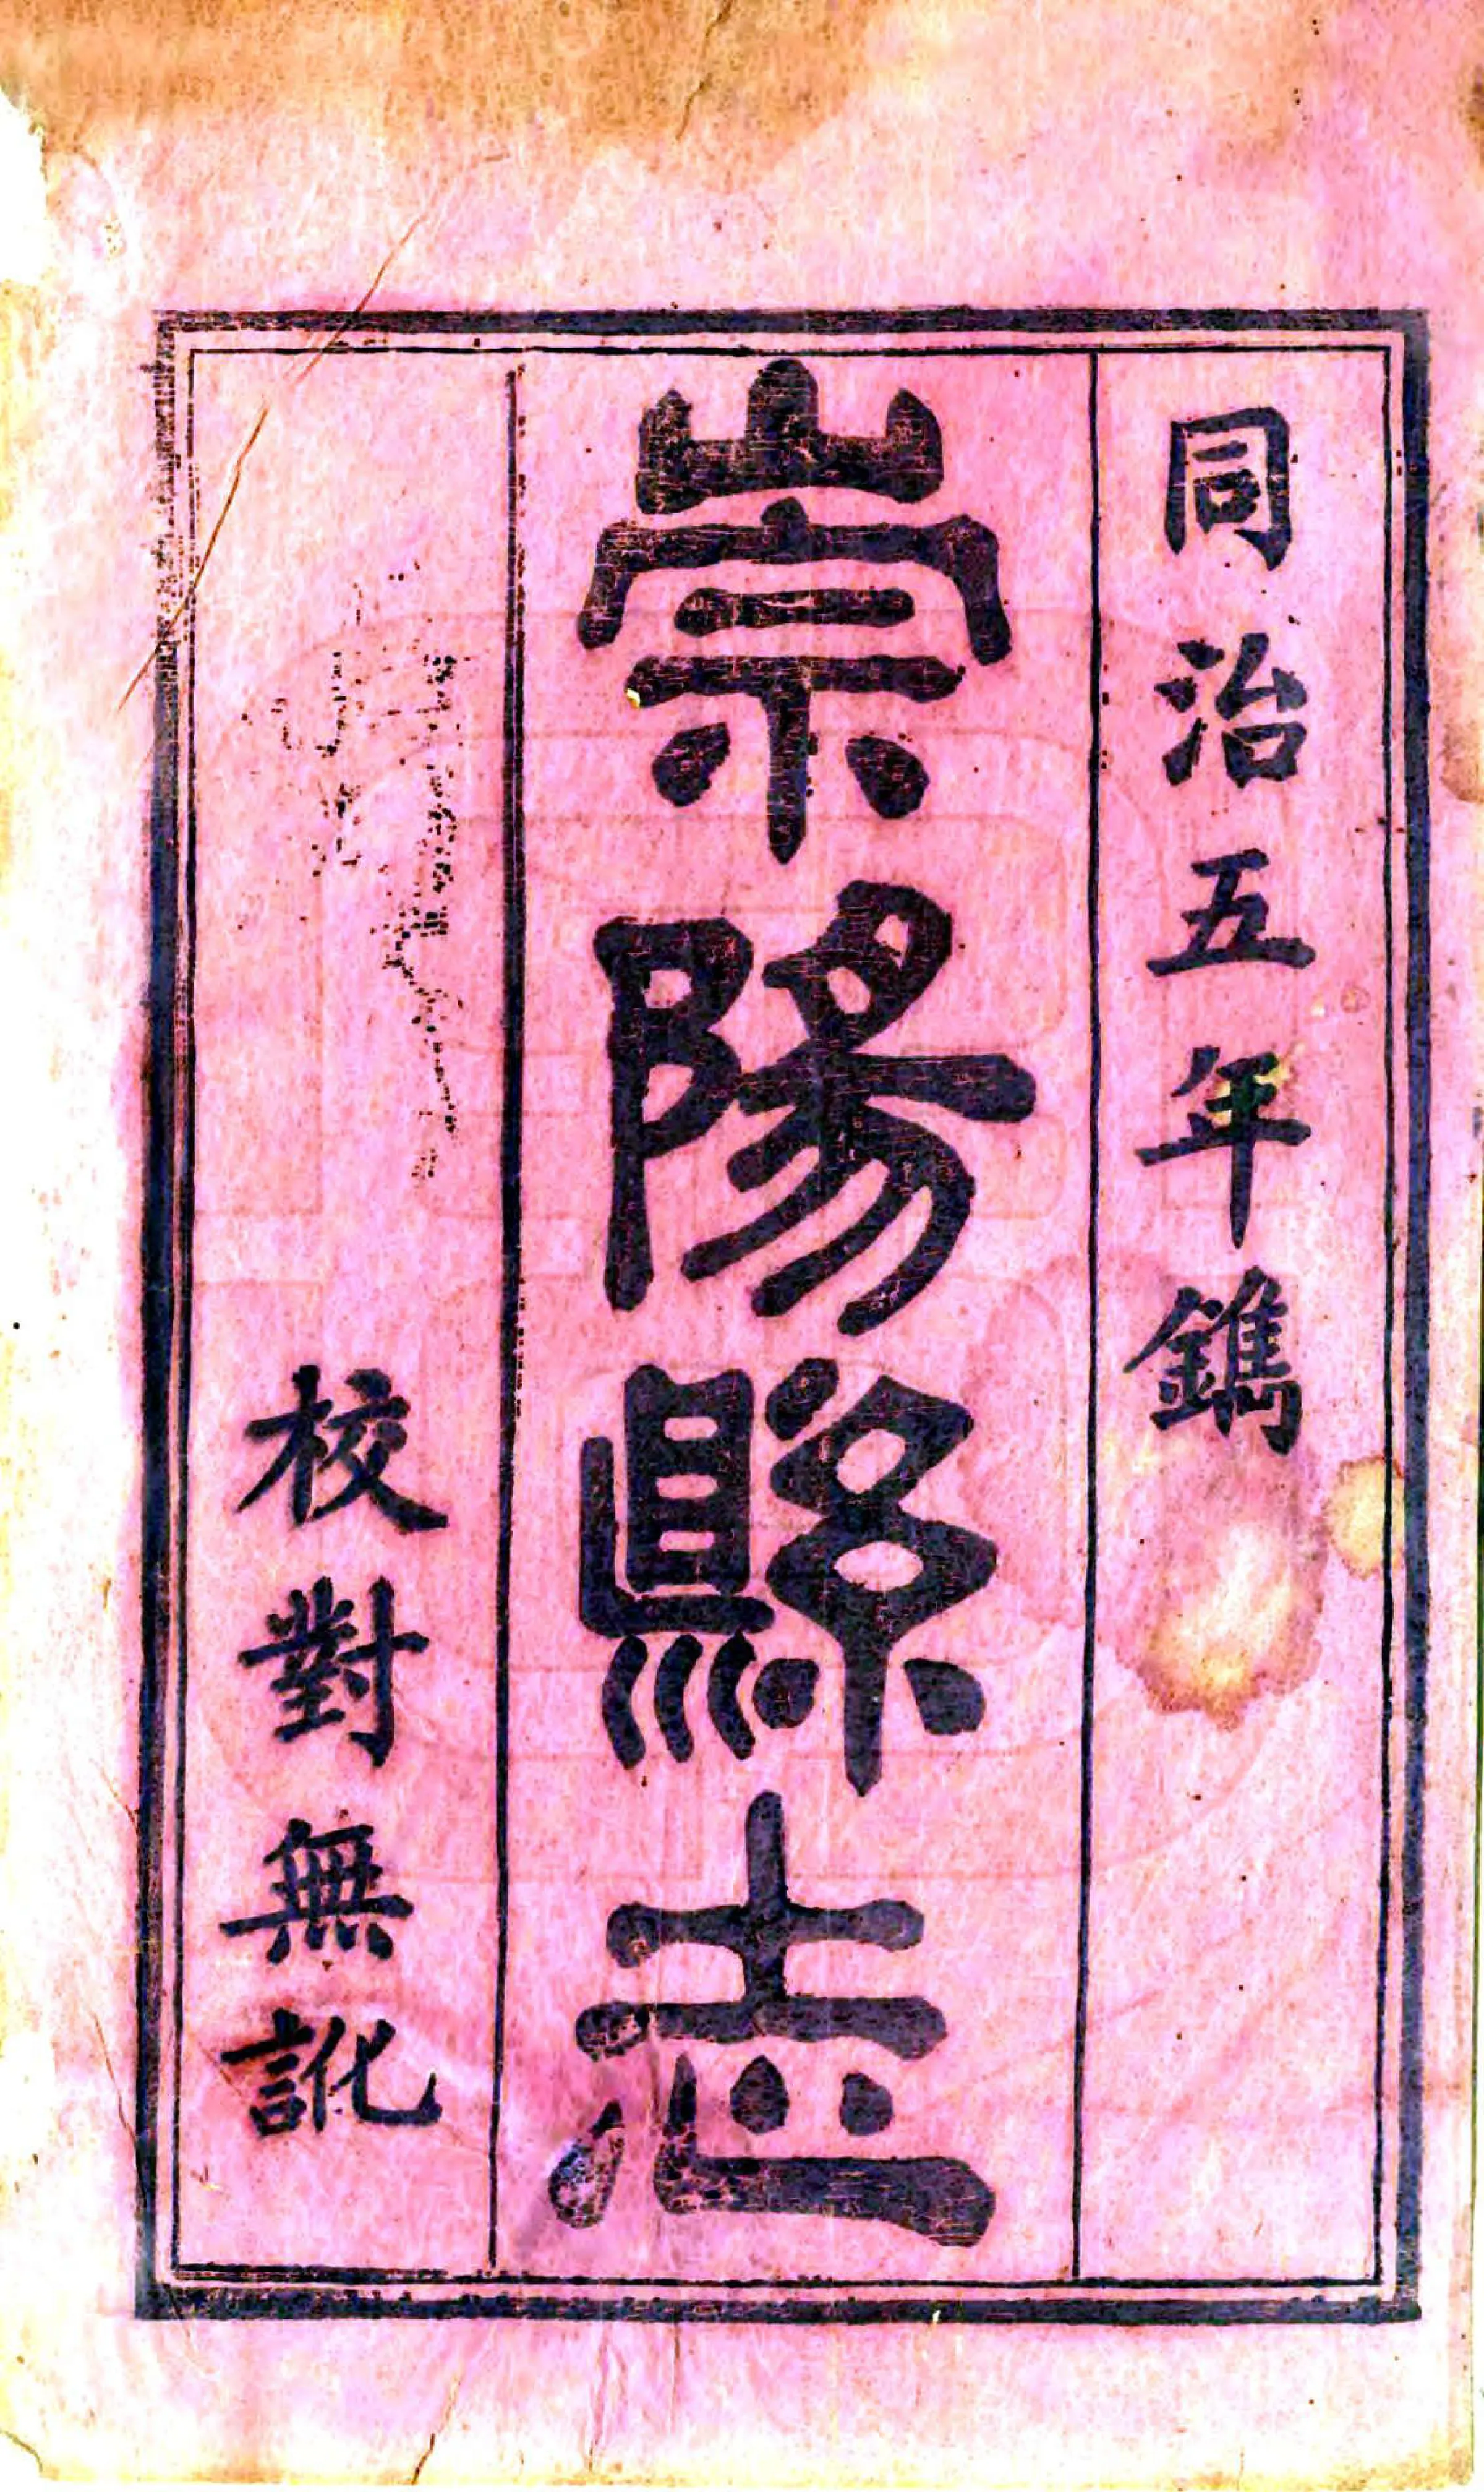 同治五年鐫
崇陽縣志
校對無訛